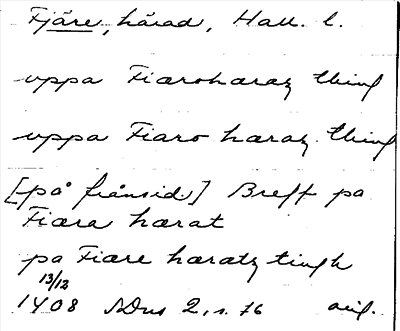 Fjäre, härad, Hall. l.
uppa Fiæroharaz thing
uppa Fiæro hæraz thing
[på frånsid.] Breff pa
Fiæra hærat
pa Fiære hæratz tingh
13/12
1408 SDns 2, s. 76 orig.